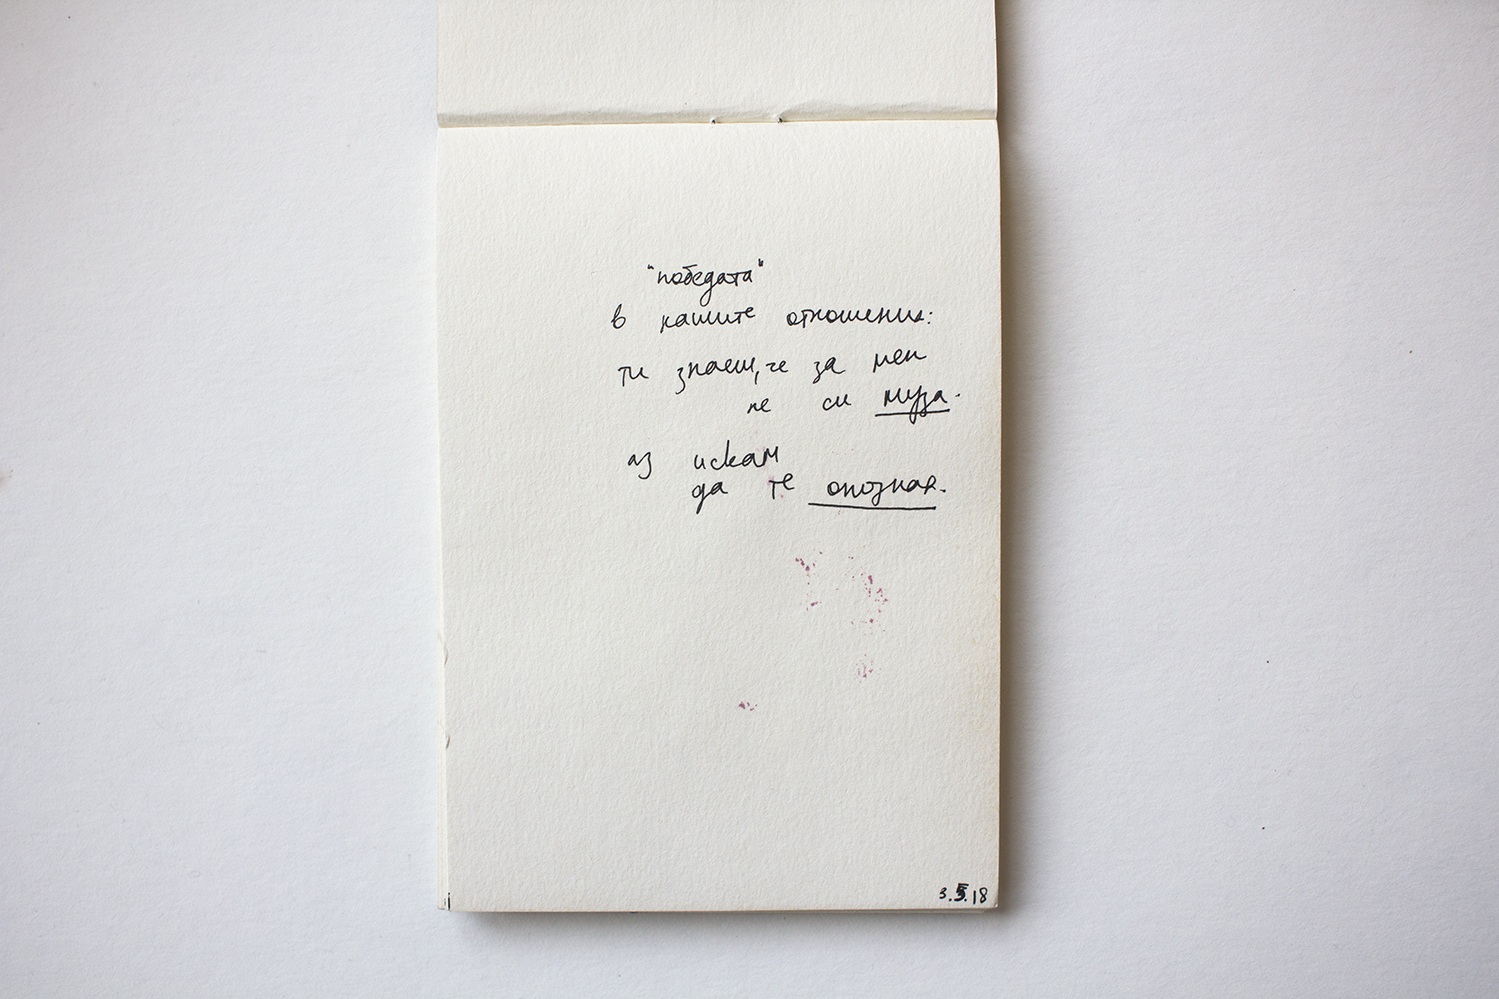 "победата"
в нашите отношения:
ти знаеш, че за мен
не си муза.
аз искам
да те опозная.
3.5.18